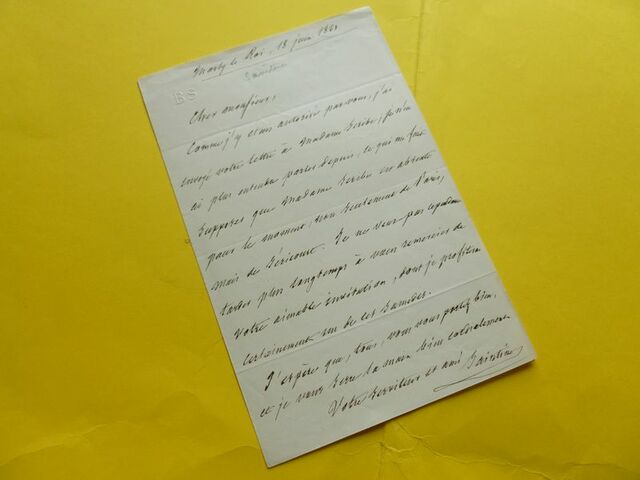 Marly le Roi, 18 juin 1861
Saintine
BS
Cher monsieur,
Comme j'y étais autorisé par vous, j'ai
envoyé votre lettre à Madame Scribe; je n'en
ai plus entendu parler depuis, ce qui me fait
supposer que Madame Scribe est absente
pour le moment, non seulement de Paris,
mais de Séricourt. Je ne veux pas cependant
tarder plus longtemps à vous remercier de
votre aimable invitation, dont je profiterai
certainement un de ces Samedis.
J'espère que, tous, vous vous portez bien,
et je vous serre la main bien cordialement
Votre serviteur et ami Saintine